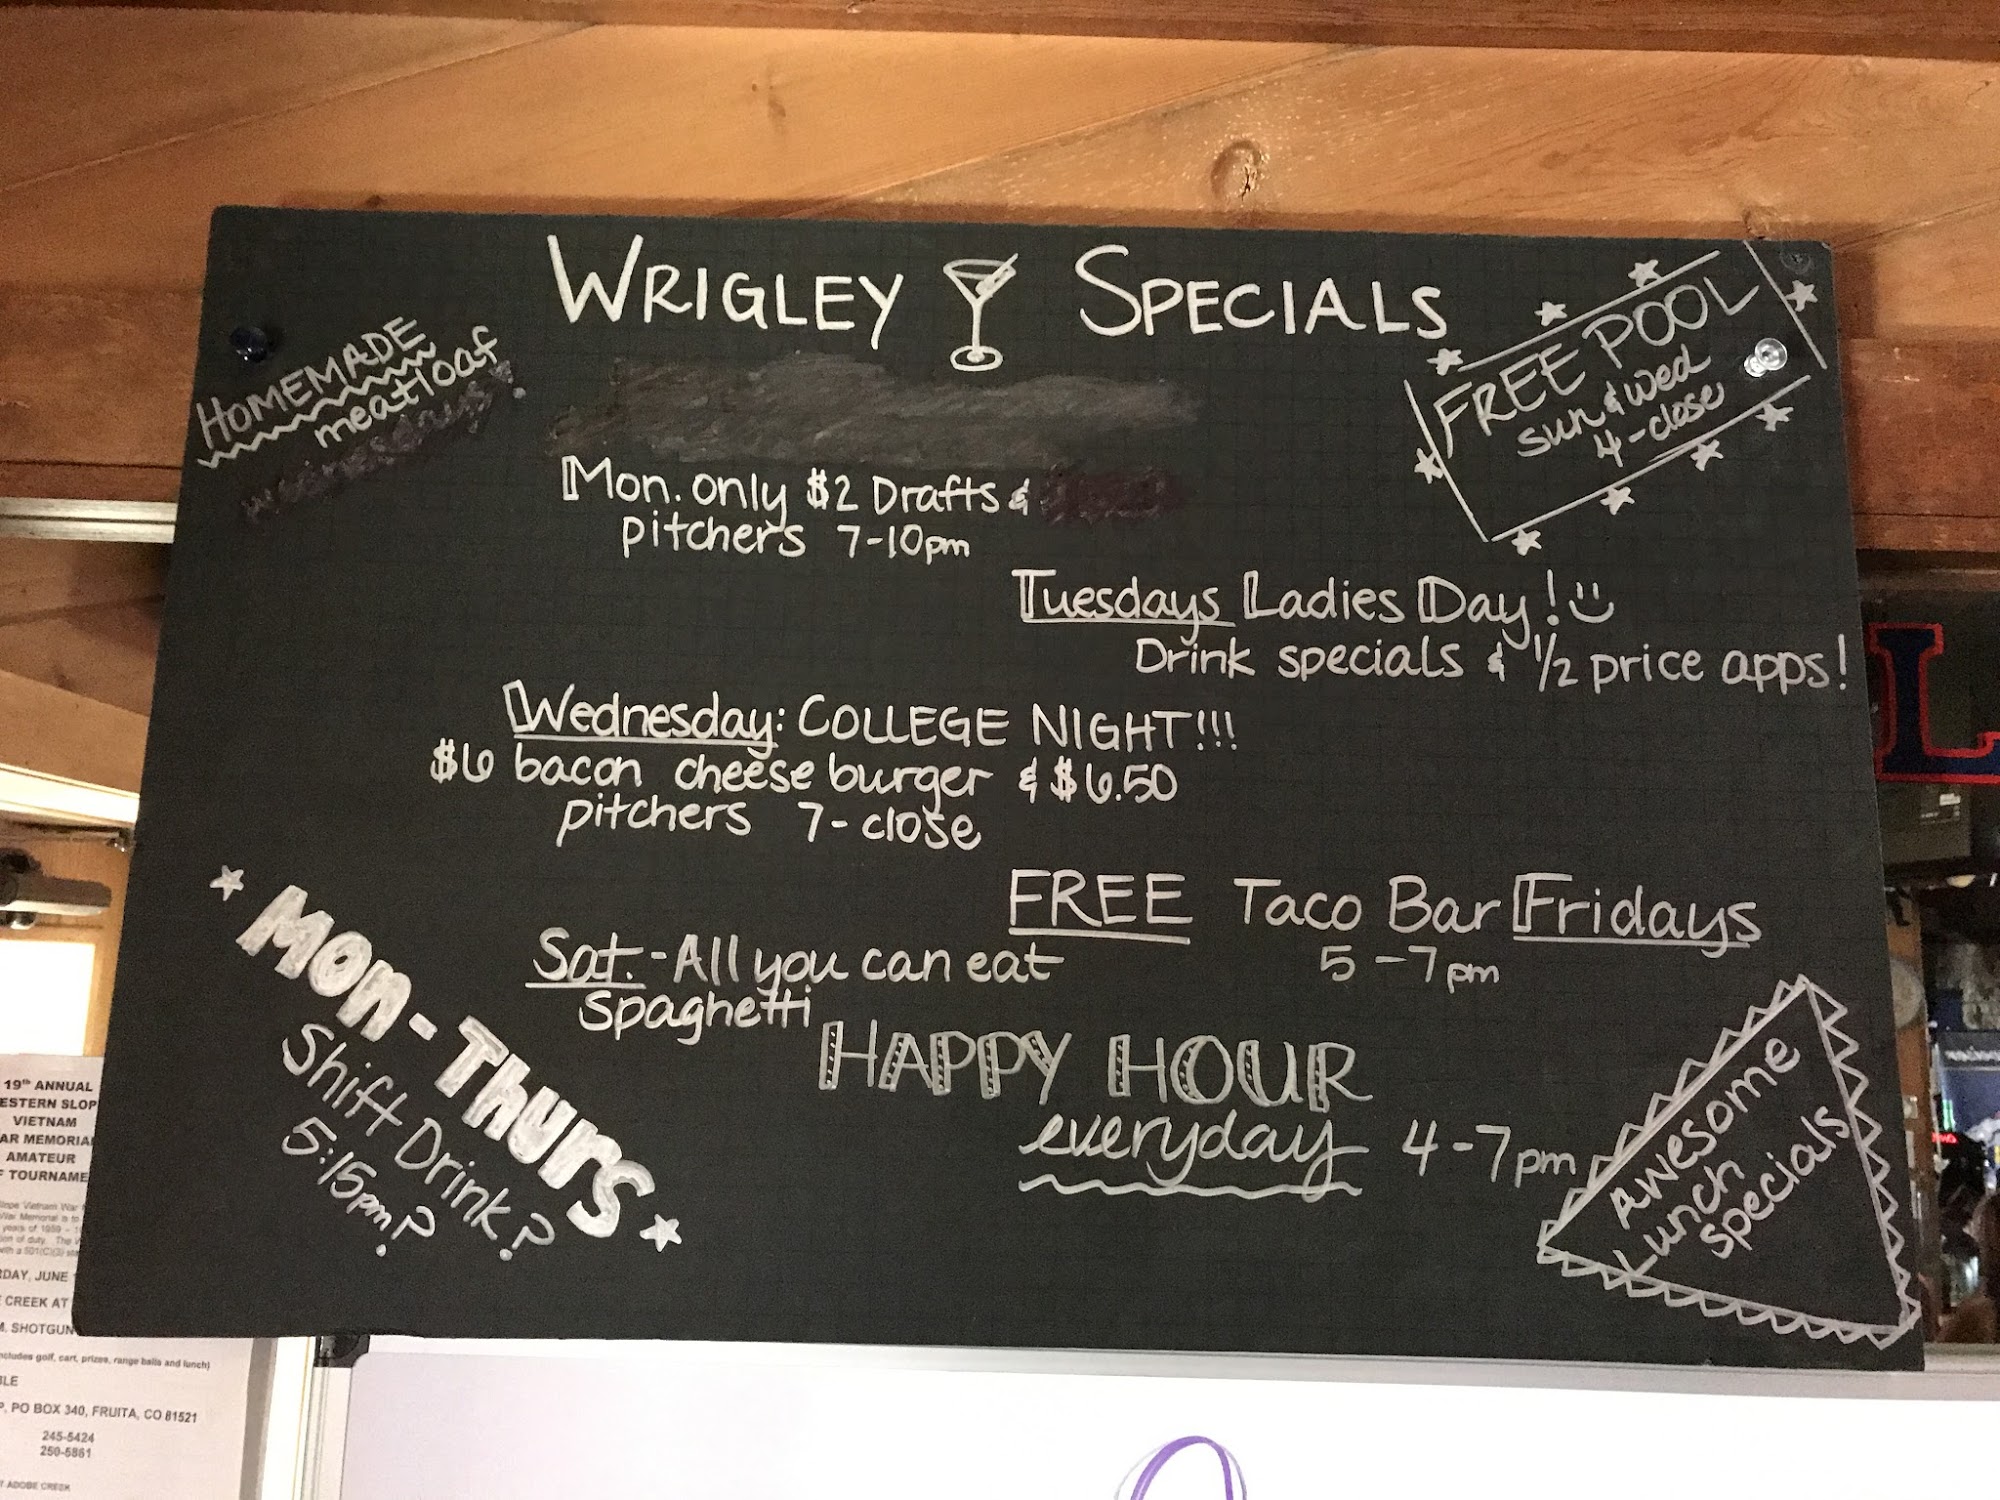 WRIGLEY SPECIALS
HOMEMADE
meatloaf
FREE POOL
sun & wed
4-close
Mon. only $2 Drafts &
pitchers 7-10pm
Tuesdays Ladies Day!
Drink specials & 1/2 price apps!
Wednesday: COLLEGE NIGHT!!!
$6 bacon cheese burger & $6.50
pitchers 7-close
FREE Taco Bar Fridays
5-7pm
Sat.-All you can eat
spaghetti
HAPPY HOUR
everyday 4-7pm
MON-THURS
Shift Drink?
5:15pm?
Awesome
Lunch
specials
L
19th ANNUAL
ESTERN SLOP
VIETNAM
AR MEMORIA
AMATEUR
F TOURNAME
RDAY, JUNE
CREEK AT
M. SHOTGUN
ncludes golf, cart, prizes, range balls and lunch)
BLE
P, PO BOX 340, FRUITA, CO 81521
245-5424
250-5861
T ADOBE CREEK